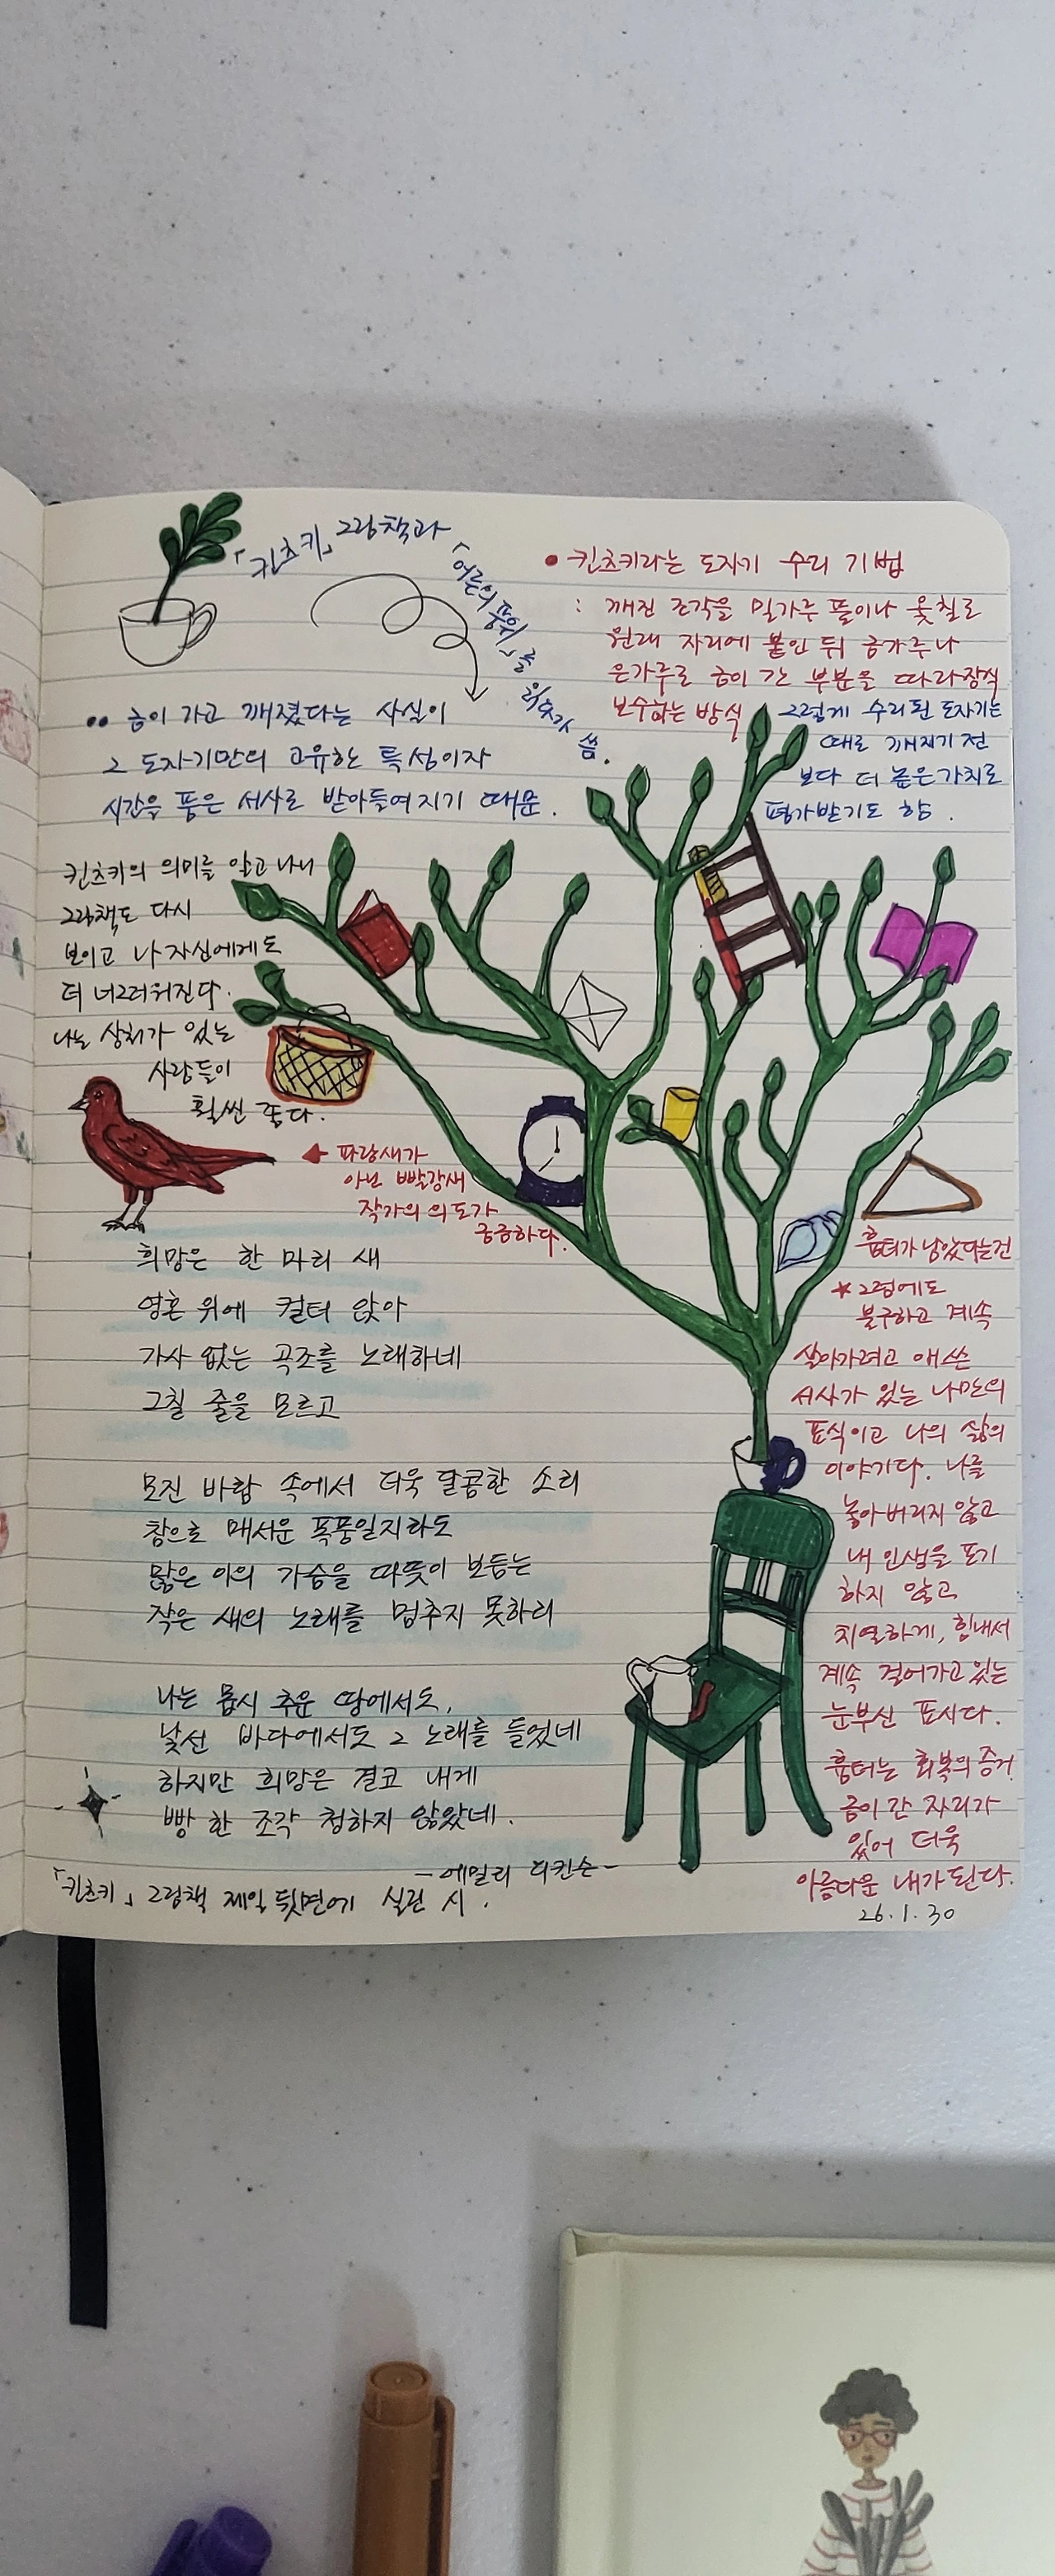 「킨츠키」 그림책과
「어른의 품위」를
읽고 씀.
• 킨츠키라는 도자기 수리 기법
: 깨진 조각을 밀가루 풀이나 옻칠로
원래 자리에 붙인 뒤 금가루나
은가루로 금이 간 부분을 따라 장식
보수하는 방식
그렇게 수리된 도자기는
때로 깨지기 전
보다 더 높은 가치로
평가받기도 함.
•• 금이 가고 깨졌다는 사실이
그 도자기만의 고유한 특성이자
시간을 품은 서사로 받아들여지기 때문.
킨츠키의 의미를 알고 나니
그림책도 다시
보이고 나 자신에게도
더 너그러워진다.
나는 상처가 있는
사람들이
훨씬 좋다.
◀ 파랑새가
아닌 빨강새
작가의 의도가
궁금하다.
희망은 한 마리 새
영혼 위에 걸터 앉아
가사 없는 곡조를 노래하네
그칠 줄을 모르고
모진 바람 속에서 더욱 달콤한 소리
참으로 매서운 폭풍일지라도
많은 이의 가슴을 따뜻이 보듬는
작은 새의 노래를 멈추지 못하리
나는 몹시 추운 땅에서도,
낯선 바다에서도 그 노래를 들었네
하지만 희망은 결코 내게
빵 한 조각 청하지 않았네.
-에밀리 디킨슨-
「킨츠키」 그림책 제일 뒷면에 실린 시.
흉터가 남았다는건
★ 그럼에도
불구하고 계속
살아가려고 애쓴
서사가 있는 나만의
표식이고 나의 삶의
이야기다. 나를
놓아버리지 않고
내 인생을 포기
하지 않고
치열하게, 힘내서
계속 걸어가고 있는
눈부신 표시다.
흉터는 회복의 증거
금이 간 자리가
있어 더욱
아름다운 내가 된다.
26.1.30